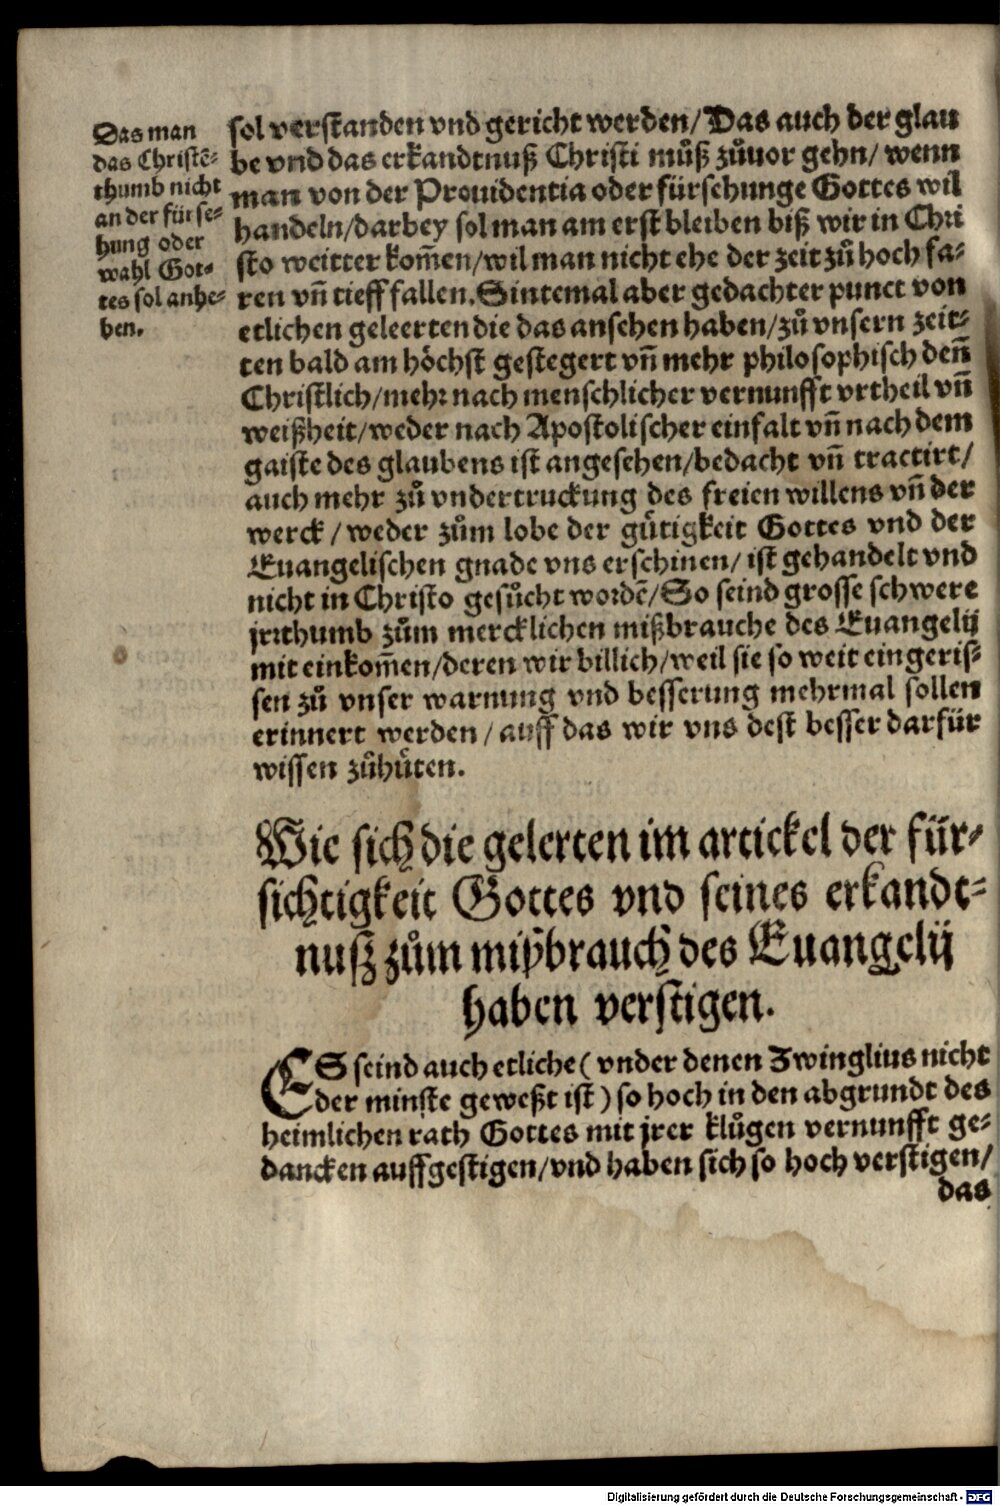 Das man
das Christē-
thumb nicht
an der fürse-
hung oder
wahl Got-
tes sol anhe-
ben.
sol verstanden vnd gericht werden/ Das auch der glau
be vnd das erkandtnuß Christi müß zůuor gehn/ wenn
man von der Prouidentia oder fürsehunge Gottes wil
handeln/ darbey sol man am erst bleiben biß wir in Chri
sto weitter kom̄en/ wil man nicht ehe der zeit zů hoch fa-
ren vn̄ tieff fallen. Sintemal aber gedachter punct von
etlichen geleerten die das ansehen haben/ zů vnsern zeit-
ten bald am höchst gestegert vn̄ mehr philosophisch den̄
Christlich/ mehr nach menschlicher vernunfft vrtheil vn̄
weißheit/ weder nach Apostolischer einfalt vn̄ nach dem
gaiste des glaubens ist angesehen/ bedacht vn̄ tractirt/
auch mehr zů vndertruckung des freien willens vn̄ der
werck/ weder zům lobe der gütigkeit Gottes vnd der
Euangelischen gnade vns erschinen/ ist gehandelt vnd
nicht in Christo gesůcht wordē/ So seind grosse schwere
jrrthumb zům mercklichen mißbrauche des Euangelij
mit einkom̄en/ deren wir billich/ weil sie so weit eingeris-
sen zů vnser warnung vnd besserung mehrmal sollen
erinnert werden/ auff das wir vns dest besser darfür
wissen zůhüten.
Wie sich die gelerten im artickel der für-
sichtigkeit Gottes vnd seines erkandt-
nuß zům mißbrauch des Euangelij
haben verstigen.
ES seind auch etliche (vnder denen Zwinglius nicht
der minste geweßt ist) so hoch in den abgrundt des
heimlichen rath Gottes mit jrer klůgen vernunfft ge-
dancken auffgestigen/ vnd haben sich so hoch verstigen/
das
Digitalisierung gefördert durch die Deutsche Forschungsgemeinschaft - DFG